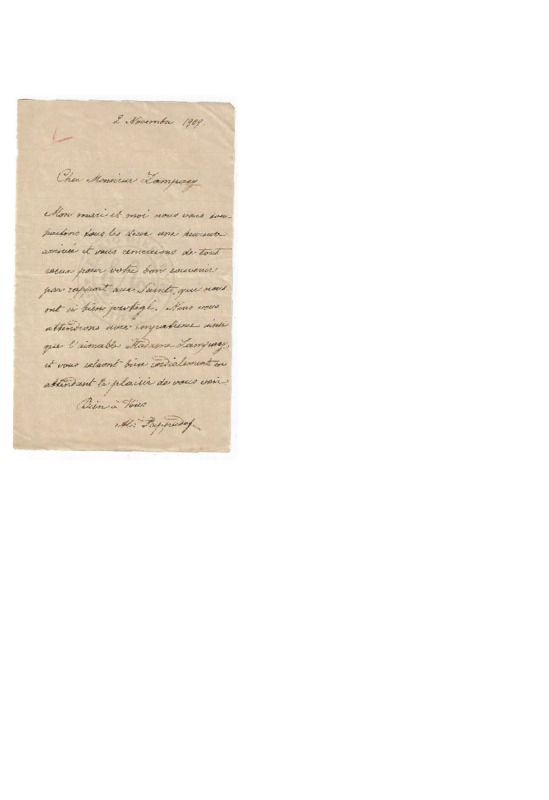 2 Novembre 1909.
Cher Monsieur Lampugy
Mon mari et moi nous vous sou-
haitons tous les deux une heureuse
arrivée et vous remercions de tout
coeur pour votre bon souvenir
par rapport aux Saints, que nous
ont si bien protégé. Nous vous
attendrons avec impatience ainsi
que l'aimable Madame Lampugy,
et vous saluons bien cordialement en
attendant le plaisir de vous voir
Bien à Vous